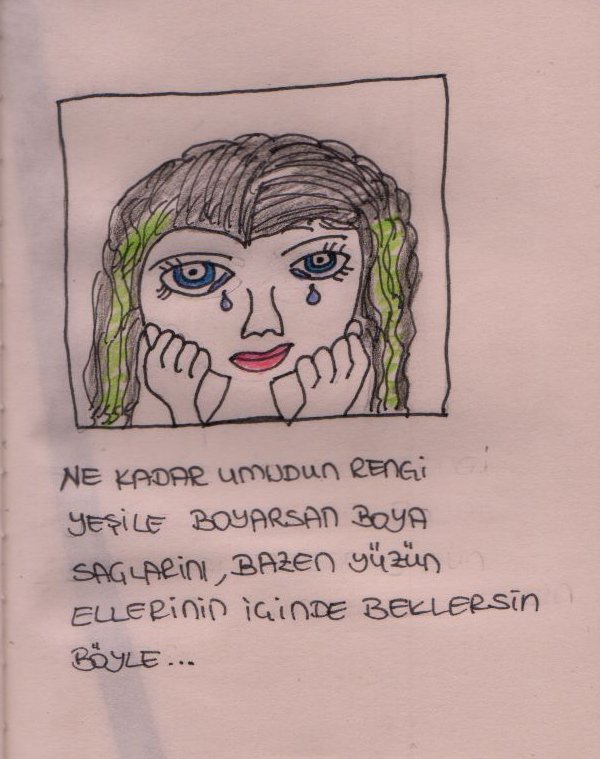 NE KADAR UMUDUN RENGİ
YEŞİLE BOYARSAN BOYA
SAÇLARINI, BAZEN YÜZÜN
ELLERİNİN İÇİNDE BEKLERSİN
BÖYLE...